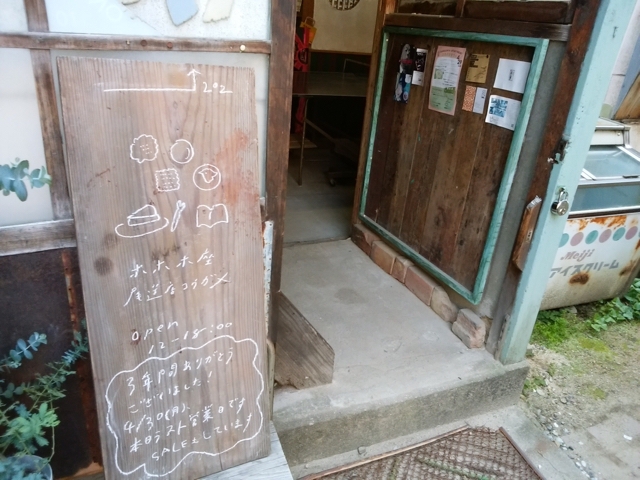 202
ホホホ座
尾道店コウガメ
open
12-18:00
3年間ありがとう
ございました!
4/30(月)
本日ラスト営業日です
SALEしています
Meiji
アイスクリーム